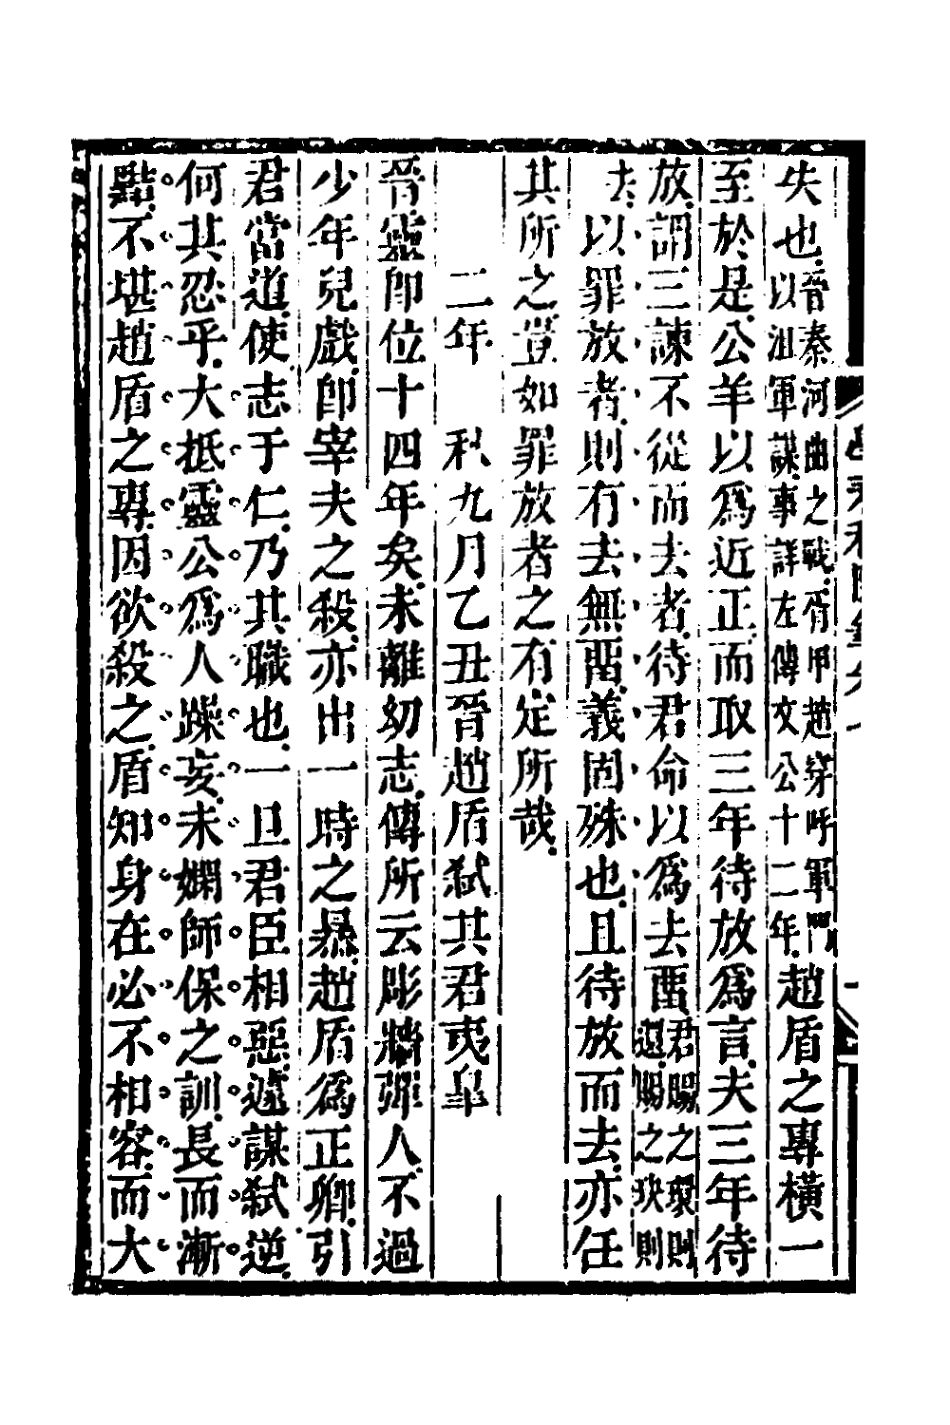 失也晉秦河曲之戰胥甲趙穿呼軍門以沮軍謀事詳左傳文公十二年趙盾之專橫一
至於是公羊以爲近正而取三年待放爲言夫三年待
放謂三諫不從而去者待君命以爲去畱君賜之環則還賜之玦則
去以罪放者則有去無畱義固殊也且待放而去亦任
其所之豈如罪放者之有定所哉
二年　秋九月乙丑晉趙盾弑其君夷皐
晉靈卽位十四年矣未離幼志傳所云彫牆彈人不過
少年兒戲卽宰夫之殺亦出一時之暴趙盾爲正卿引
君當道使志于仁乃其職也一旦君臣相惡遽謀弑逆
何其忍乎大抵靈公爲人躁妄未嫻師保之訓長而漸
黠不堪趙盾之專因欲殺之盾知身在必不相容而大